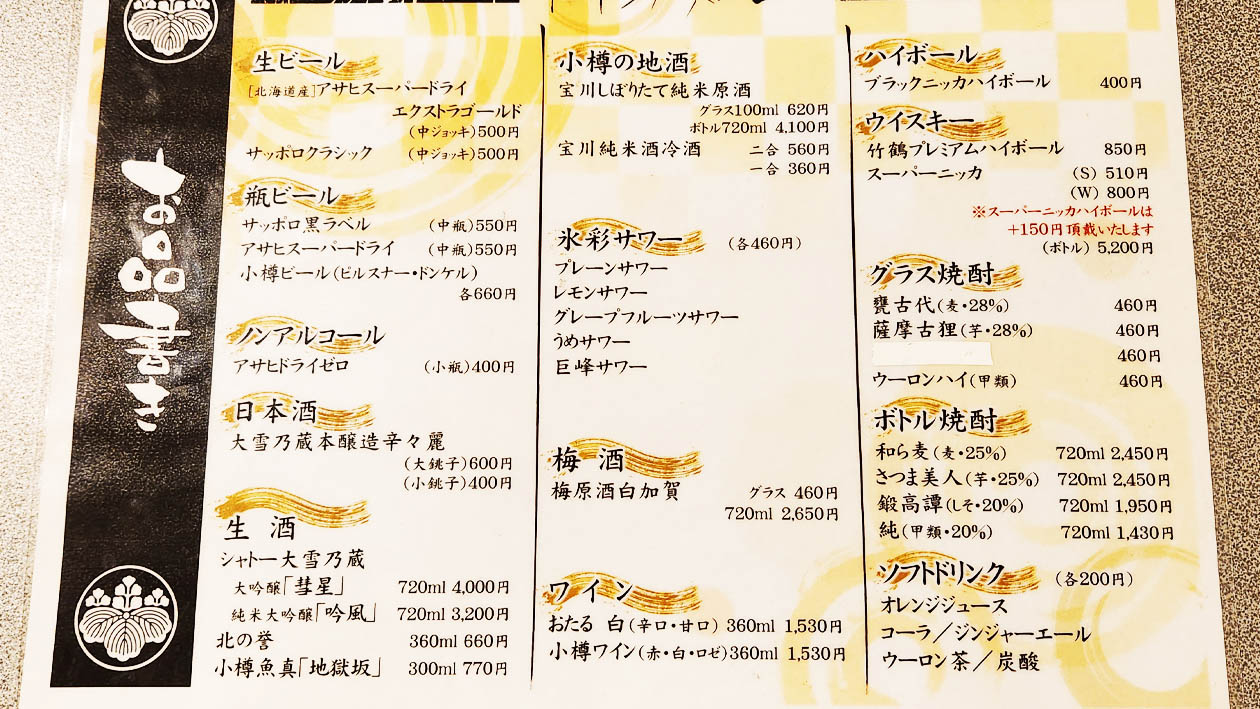 お品書き
生ビール
[北海道産]アサヒスーパードライ
エクストラゴールド
(中ジョッキ)500円
サッポロクラシック (中ジョッキ)500円
瓶ビール
サッポロ黒ラベル (中瓶)550円
アサヒスーパードライ (中瓶)550円
小樽ビール(ピルスナー・ドンケル)
各660円
ノンアルコール
アサヒドライゼロ (小瓶)400円
日本酒
大雪乃蔵本醸造辛々麗
(大銚子)600円
(小銚子)400円
生酒
シャトー大雪乃蔵
大吟醸「彗星」 720ml 4,000円
純米大吟醸「吟風」 720ml 3,200円
北の誉 360ml 660円
小樽魚真「地獄坂」 300ml 770円
小樽の地酒
宝川しぼりたて純米原酒
グラス100ml 620円
ボトル720ml 4,100円
宝川純米酒冷酒 二合 560円
一合 360円
氷彩サワー (各460円)
プレーンサワー
レモンサワー
グレープフルーツサワー
うめサワー
巨峰サワー
梅酒
梅原酒白加賀 グラス 460円
720ml 2,650円
ワイン
おたる 白(辛口・甘口) 360ml 1,530円
小樽ワイン(赤・白・ロゼ)360ml 1,530円
ハイボール
ブラックニッカハイボール 400円
ウイスキー
竹鶴プレミアムハイボール 850円
スーパーニッカ (S) 510円
(W) 800円
※スーパーニッカハイボールは
+150円頂戴いたします
(ボトル) 5,200円
グラス焼酎
甕古代(麦・28%) 460円
薩摩古狸(芋・28%) 460円
460円
ウーロンハイ(甲類) 460円
ボトル焼酎
和ら麦(麦・25%) 720ml 2,450円
さつま美人(芋・25%) 720ml 2,450円
鍛高譚(しそ・20%) 720ml 1,950円
純(甲類・20%) 720ml 1,430円
ソフトドリンク (各200円)
オレンジジュース
コーラ/ジンジャーエール
ウーロン茶/炭酸